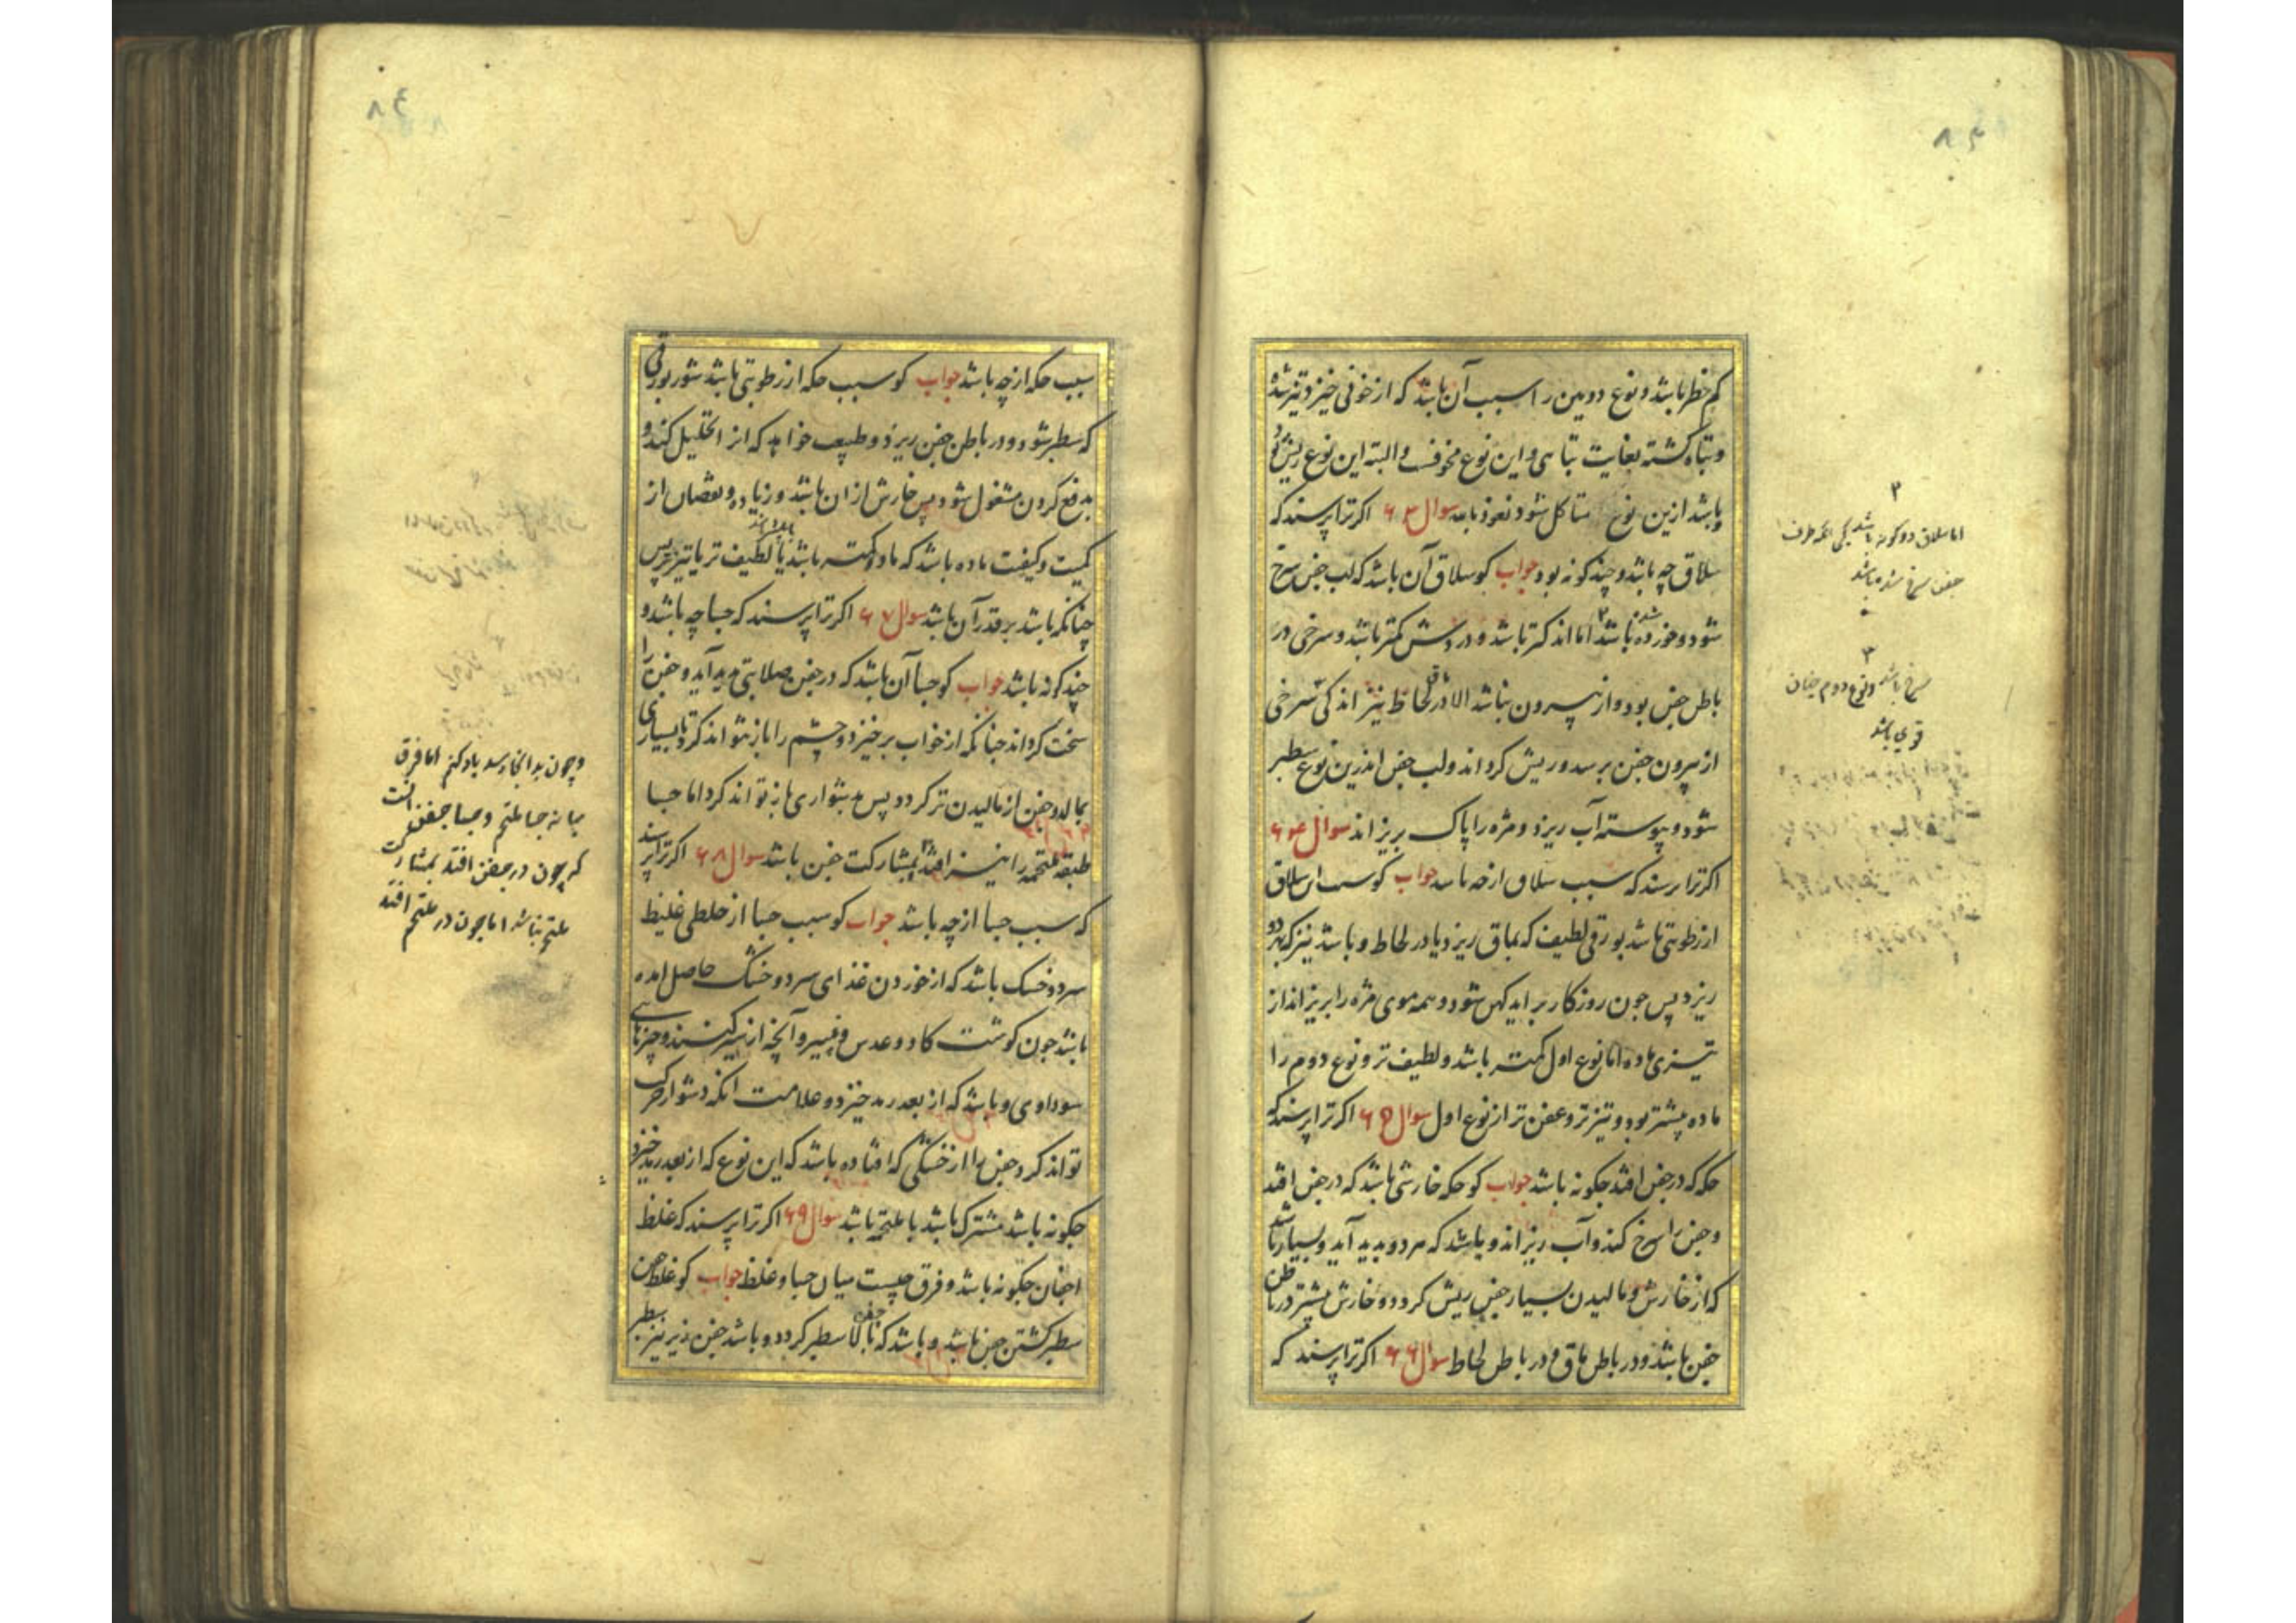 کم خطر باشد و نوع دومین را سبب آن باشد که از خونی خیزد تیز شده
و تباه کشته بغایت تباهی و این نوع مخوفست و البته این نوع ریش کرد
و باشد ازین نوع متاکل شود نعوذ بالله سوال ۶۳ اکر ترا پرسند که
سلاق چه باشد و چند کونه بود جواب کو سلاق آن باشد که لب جفن سرخ
شود و خورده شده باشد ۲ اما اندکتر باشد و دردش کمتر باشد و سرخی در
باطن جفن بود و از بیرون نباشد الا در لحاظ نیز اندکی سرخی
از بیرون جفن برسد و ریش کرداند و لب جفن اندرین نوع سطبر
شود و پیوسته آب ریزد و مژه را پاک بریزاند سوال ۶۴
اکر ترا پرسند که سبب سلاق از چه باشد جواب کو سبب این سلاق
از رطوبتی باشد بورقی لطیف که بماق ریزد یا در لحاظ و باشد نیز که بهر دو
ریزد پس چون روزکار بر اید کهن شود و همه موی مژه را بریزاند از
تیزی ماده اما نوع اول کمتر باشد و لطیف تر و نوع دوم را
ماده بیشتر بود و تیزتر و عفن تر از نوع اول سوال ۶۵ اکر ترا پرسند که
حکه که در جفن افتد چکونه باشد جواب کو حکه خارشی باشد که در جفن افتد
و جفن را سرخ کند و آب ریزاند و باشد که مر دو پدید آید و بسیار باشد
که از خارش و مالیدن بسیار جفن ریش کردد و خارش بیشتر در باطن
جفن باشد و در باطن ماق و در باطن لحاظ سوال ۶۶ اکر ترا پرسند که
۲
اما سلاق دو کونه باشد یکی انکه طرف
جفن سرخ شده باشد
۳
سرخ باشد و نوع دوم چنان
قوی باشد
سبب حکه از چه باشد جواب کو سبب حکه از رطوبتی باشد شور بورقی
که سطبر شود و در باطن جفن ریزد و طبیعت خواهد که انرا تحلیل کند و
بدفع کردن مشغول شود پس خارش ازان باشد و زیاده و نقصان از
کمیت و کیفیت ماده باشد که ماده کمتر باشد یا لطیف تر یا تیزتر پس
چنانکه باشد بر قدر آن باشد سوال ۶۷ اکر ترا پرسند که جسا چه باشد و
چند کونه باشد جواب کو جسا آن باشد که در جفن صلابتی پدید آید و جفن را
سخت کرداند چنانکه از خواب برخیزد و چشم را باز نتواند کرد تا بسیاری
بمالد و جفن از مالیدن تر کردد و پس بدشواری باز تواند کرد اما جسا
طبقه ملتحمه را نیز افتد بمشارکت جفن باشد سوال ۶۸ اکر ترا پرسند
که سبب جسا از چه باشد جواب کو سبب جسا از خلطی غلیظ
سرد و خشک باشد که از خوردن غذای سرد و خشک حاصل امده
باشد چون کوشت کاو و عدس و پنیر و آنچه از شیر کنند و چیزهای
سوداوی و باشد که از بعد رمد خیزد و علامت انکه دشوار حرکت
تواند کرد جفن را از خشکی که افتاده باشد که این نوع که از بعد رمد خیزد
چکونه باشد مشترک باشد با ملتحمه باشد سوال ۶۹ اکر ترا پرسند که غلظ
اجفان چکونه باشد و فرق چیست میان جسا و غلظ جواب کو غلظ جفن
سطبر کشتن جفن باشد و باشد که جفن بالا سطبر کردد و باشد جفن زیر نیز سطبر
و چون بدانجا رسد یاد کنم اما فرق
میانه جسا ملتحم و جسا جفن انست
که چون در جفن افتد بمشارکت
ملتحم نباشد اما چون در ملتحم افتد